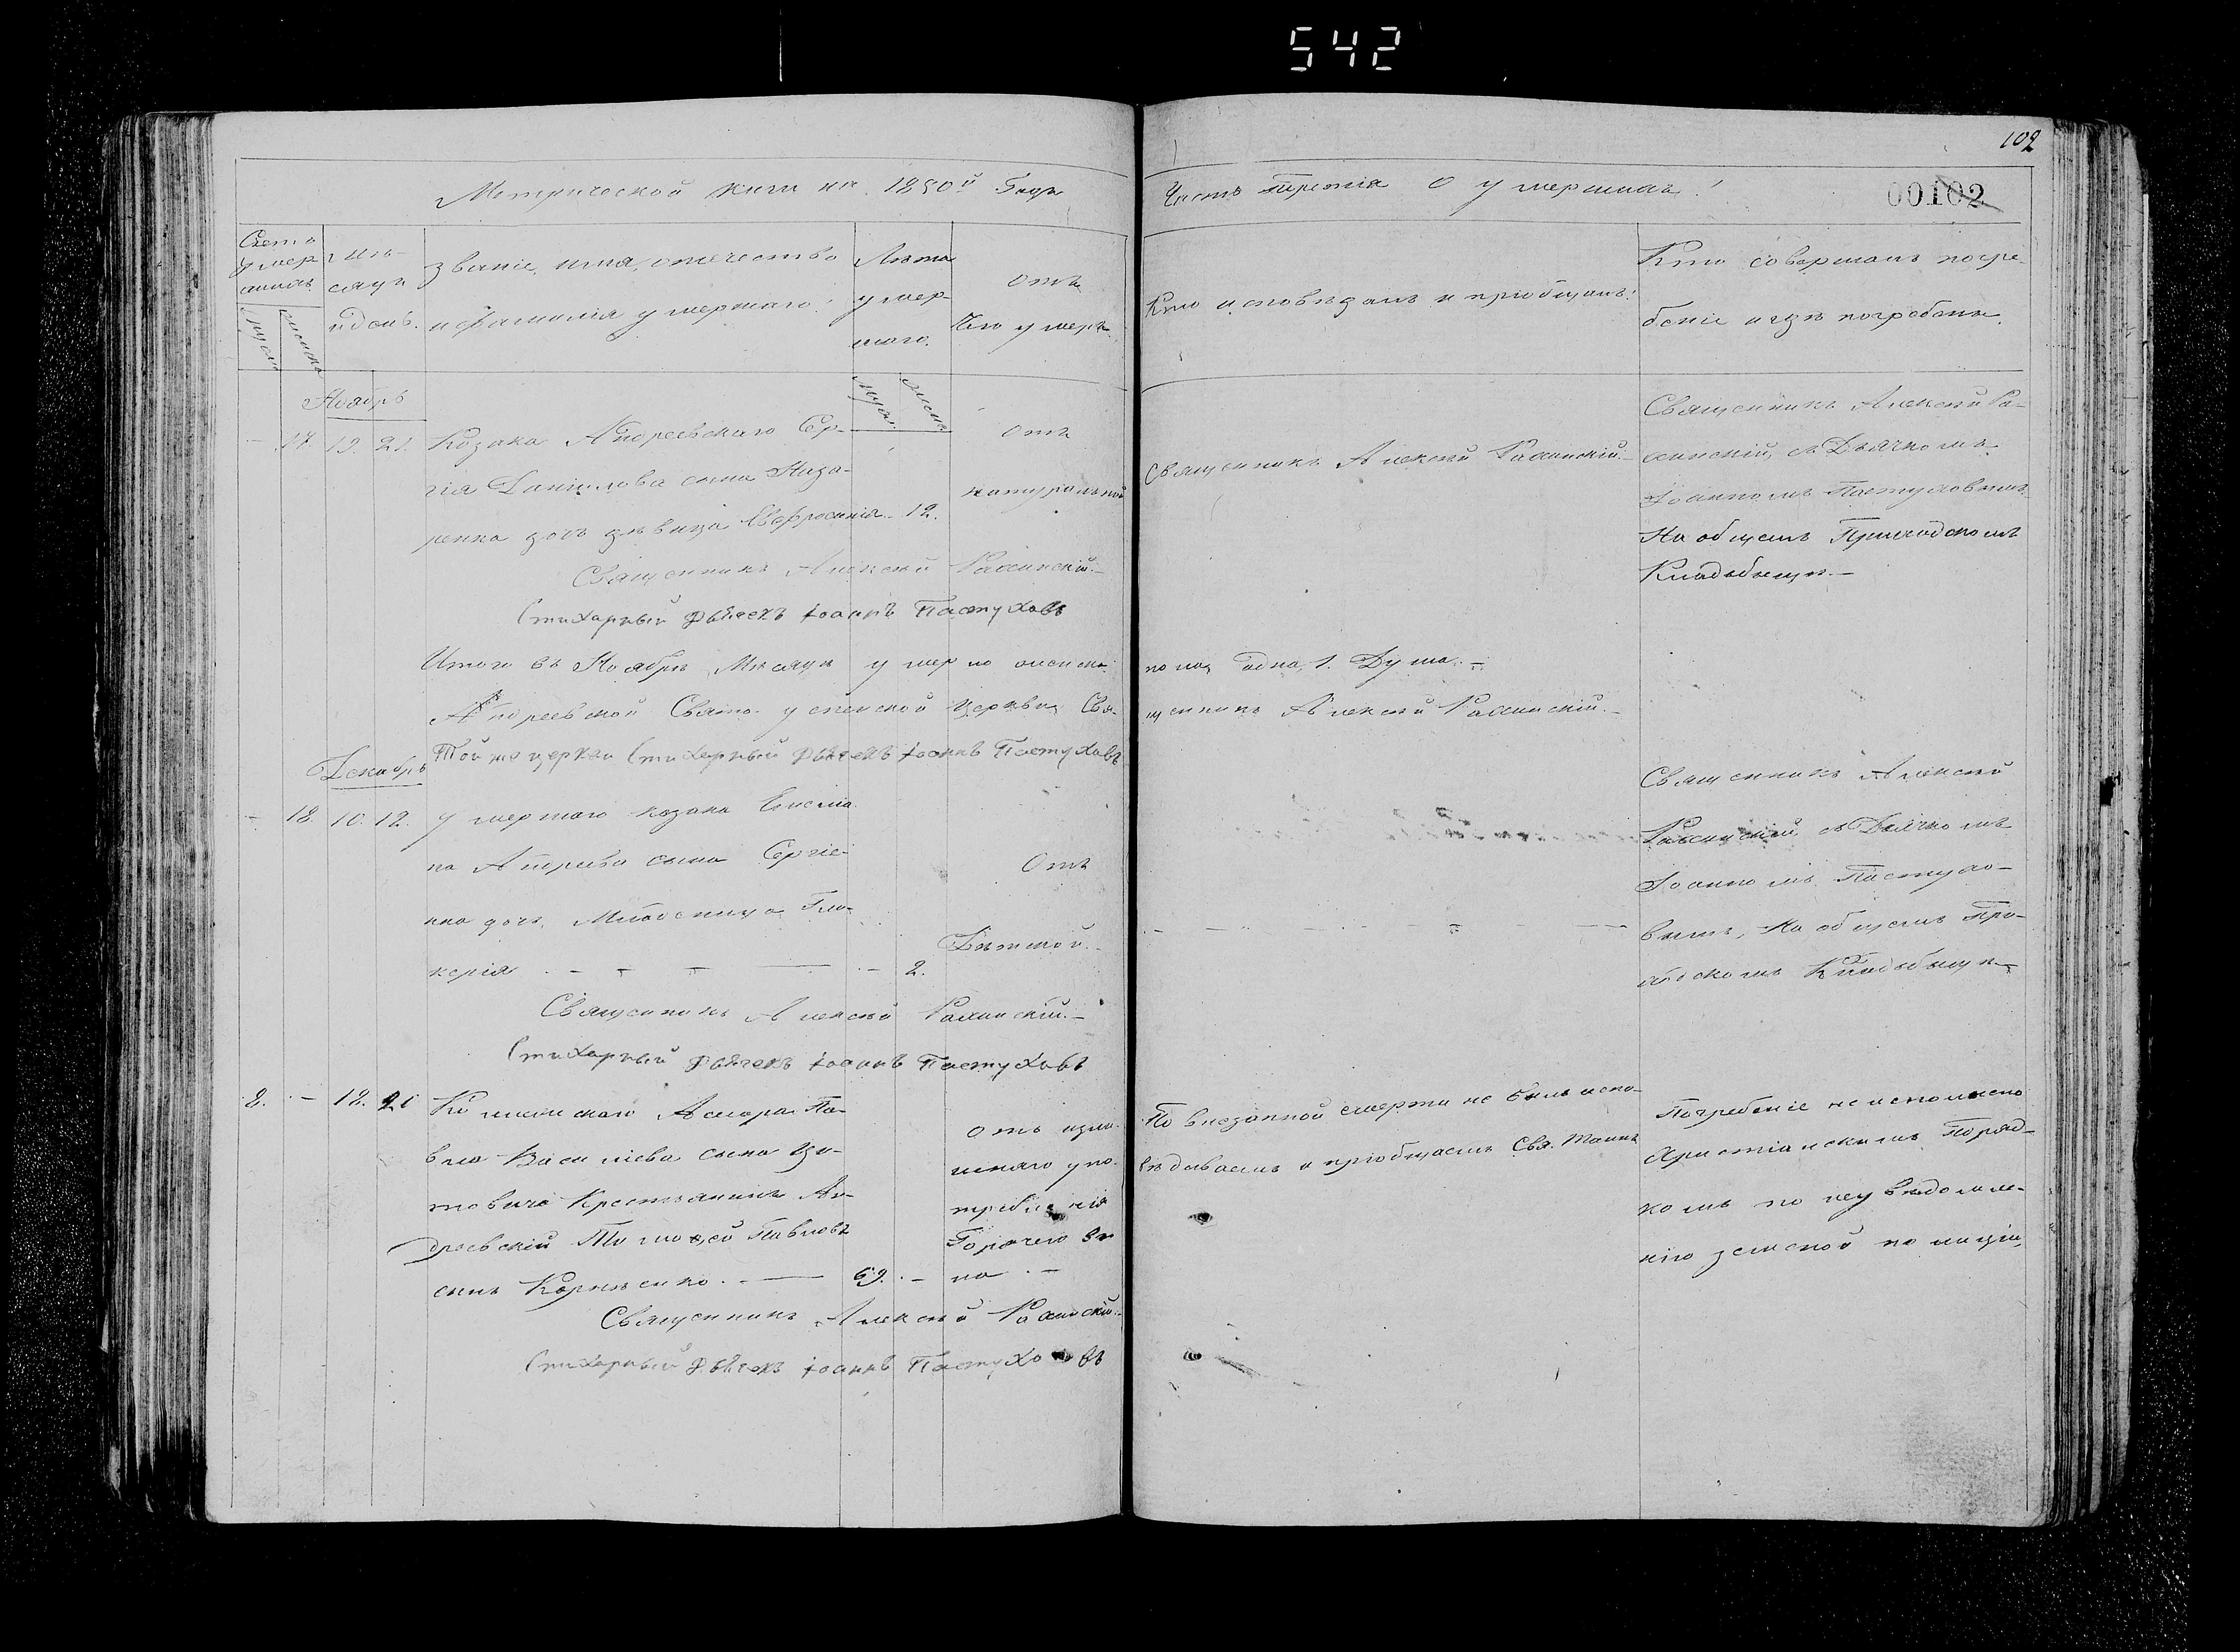 542
102
00102
Метрической книги на 1850й Годъ
Часть третія О умершихъ!
Счетъ умер шихъ.
мужеска
женска
мѣ- сяцъ и день.
званіе, имя, отечество
и фамилія умершаго!
Лѣта
умер-
шаго.
муж.
женс.
отъ
Чего умеръ
Кто исповѣдалъ и пріобщалъ!
Кто совершалъ погре-
беніе и гдѣ погребены.
Ноябрь
– 17 19. 21.
Козака Андреевскаго
гія Даніилова сына Наза-
ренка дочь дѣвица Евфросинія – 12.
отъ
натуральной
Священникъ Алексѣй
Священникъ Алексѣй
съ Дьячкомъ
Іоанномъ Пастуховымъ
На общемъ Приходскомъ
Кладбищѣ. –
Священникъ Алексѣй
Стихарный Дьячекъ Іоаннъ Пастуховъ
Итого въ Ноябрѣ Мѣсяцѣ умерло женска-
пола одна, 1. Душа. –
Андреевской Свято-успенской церкви Свя-
щенникъ Алексѣй
Той же церкви Стихарный Дьячекъ Іоаннъ Пастуховъ
Декабрь
– 18. 10. 12.
умершаго козака
на Андреева сына Сергіе-
нка дочь, Младеница Гли-
керія – – – – 2.
Отъ
Дѣтской.
Священникъ Алексѣй
съ Дьячкомъ
Іоанномъ Пастухо-
вымъ, На общемъ При-
ходскомъ Кладбищѣ –
Священникъ Алексѣй
Стихарный Дьячекъ Іоаннъ Пастуховъ
2. – 18. 21
Па-
вла Василіева сына
товича Крестьянинъ Ан-
дреевскій Тимофей Павловъ
сынъ Корнѣенко. – 69. –
отъ изли-
шняго упо-
требленія
Горячего ви
на. –
По внезапной смерти не былъ испо-
вѣдываемъ и пріобщаемъ Свя. Таинъ
Погребеніе не исполнено
Христіанскимъ Поряд-
комъ по неувѣдомле-
нію земской полиціи,
Священникъ Алексѣй
Стихарный Дьячекъ Іоаннъ Пастуховъ